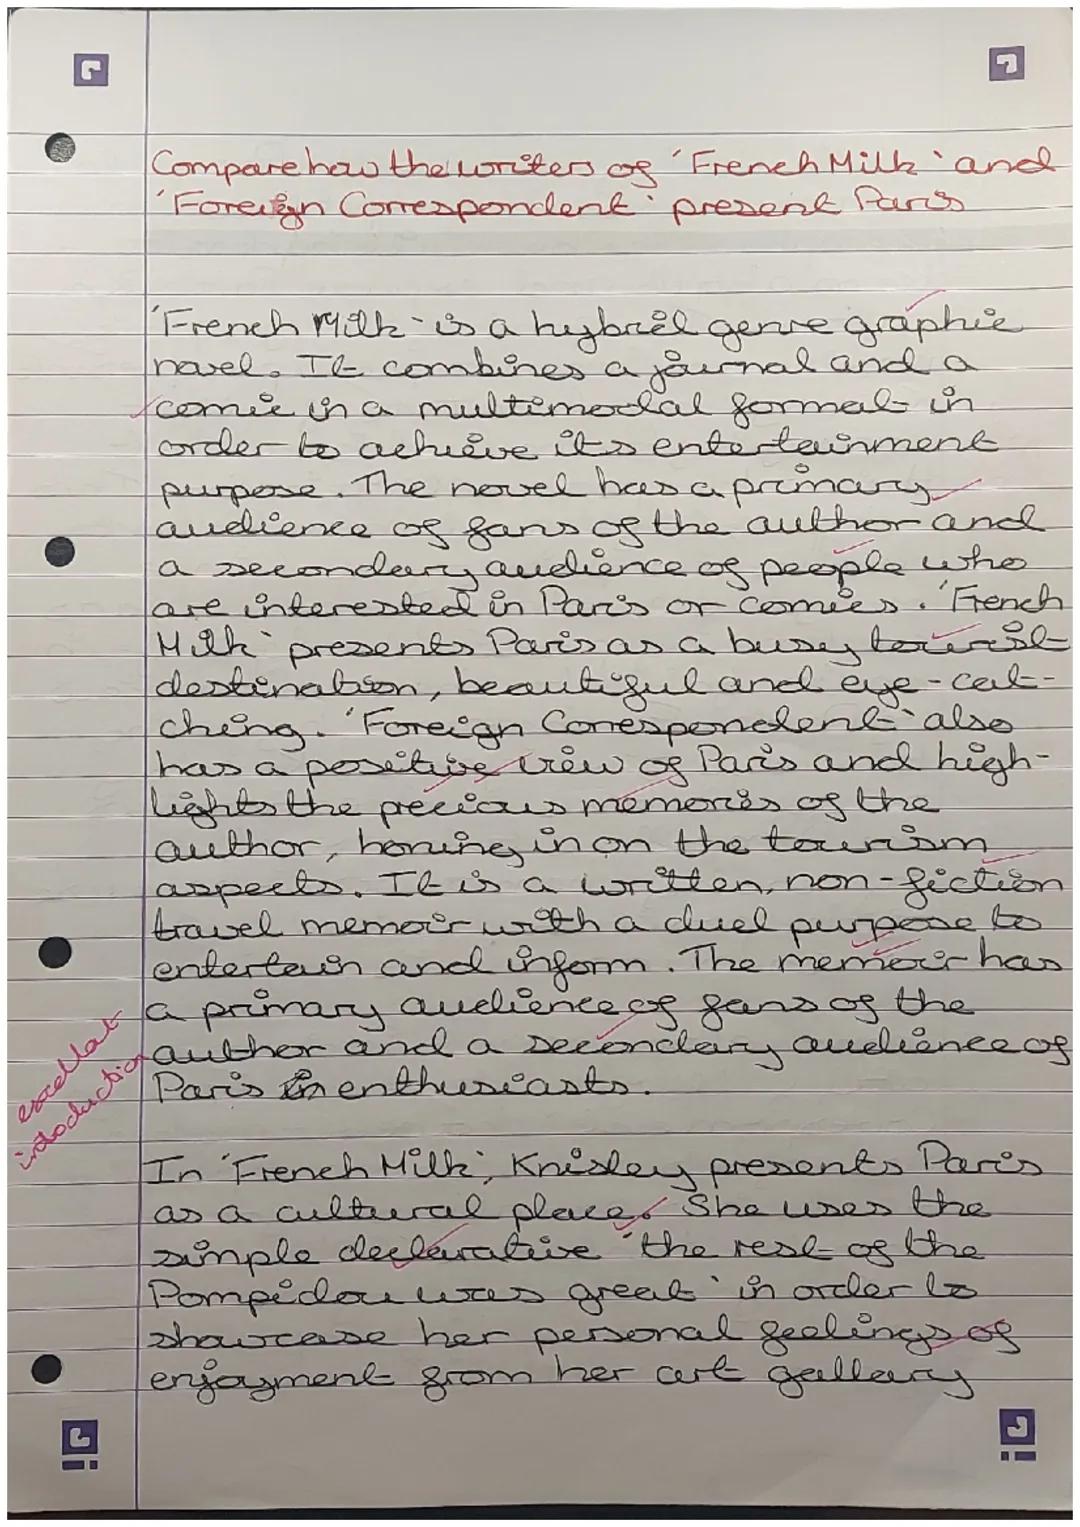 Compare how the writers of 'French Milk' and
'Foreign Correspondent' present Paris
'French Milk' is a hybrid genre graphic
novel. It combines a journal and a
comic in a multimodal format in
order to achieve its entertainment
purpose. The novel has a primary
audience of fans of the author and
a secondary audience of people who
are interested in Paris or comics. 'French
Milk' presents Paris as a busy tourist
destination, beautiful and eye-cat-
ching. 'Foreign Correspondent' also
has a positive view of Paris and high-
lights the precious memories of the
author, honing in on the tourism
aspects. It is a written, non-fiction
travel memoir with a duel purpose to
entertain and inform. The memoir has
a primary audience of fans of the
author and a secondary audience of
Paris enthusiasts.
excellat
introduction
In 'French Milk', Knisley presents Paris
as a cultural place. She uses the
simple declarative 'the rest of the
Pompidou was great' in order to
showcase her personal feelings of
enjoyment from her art gallery